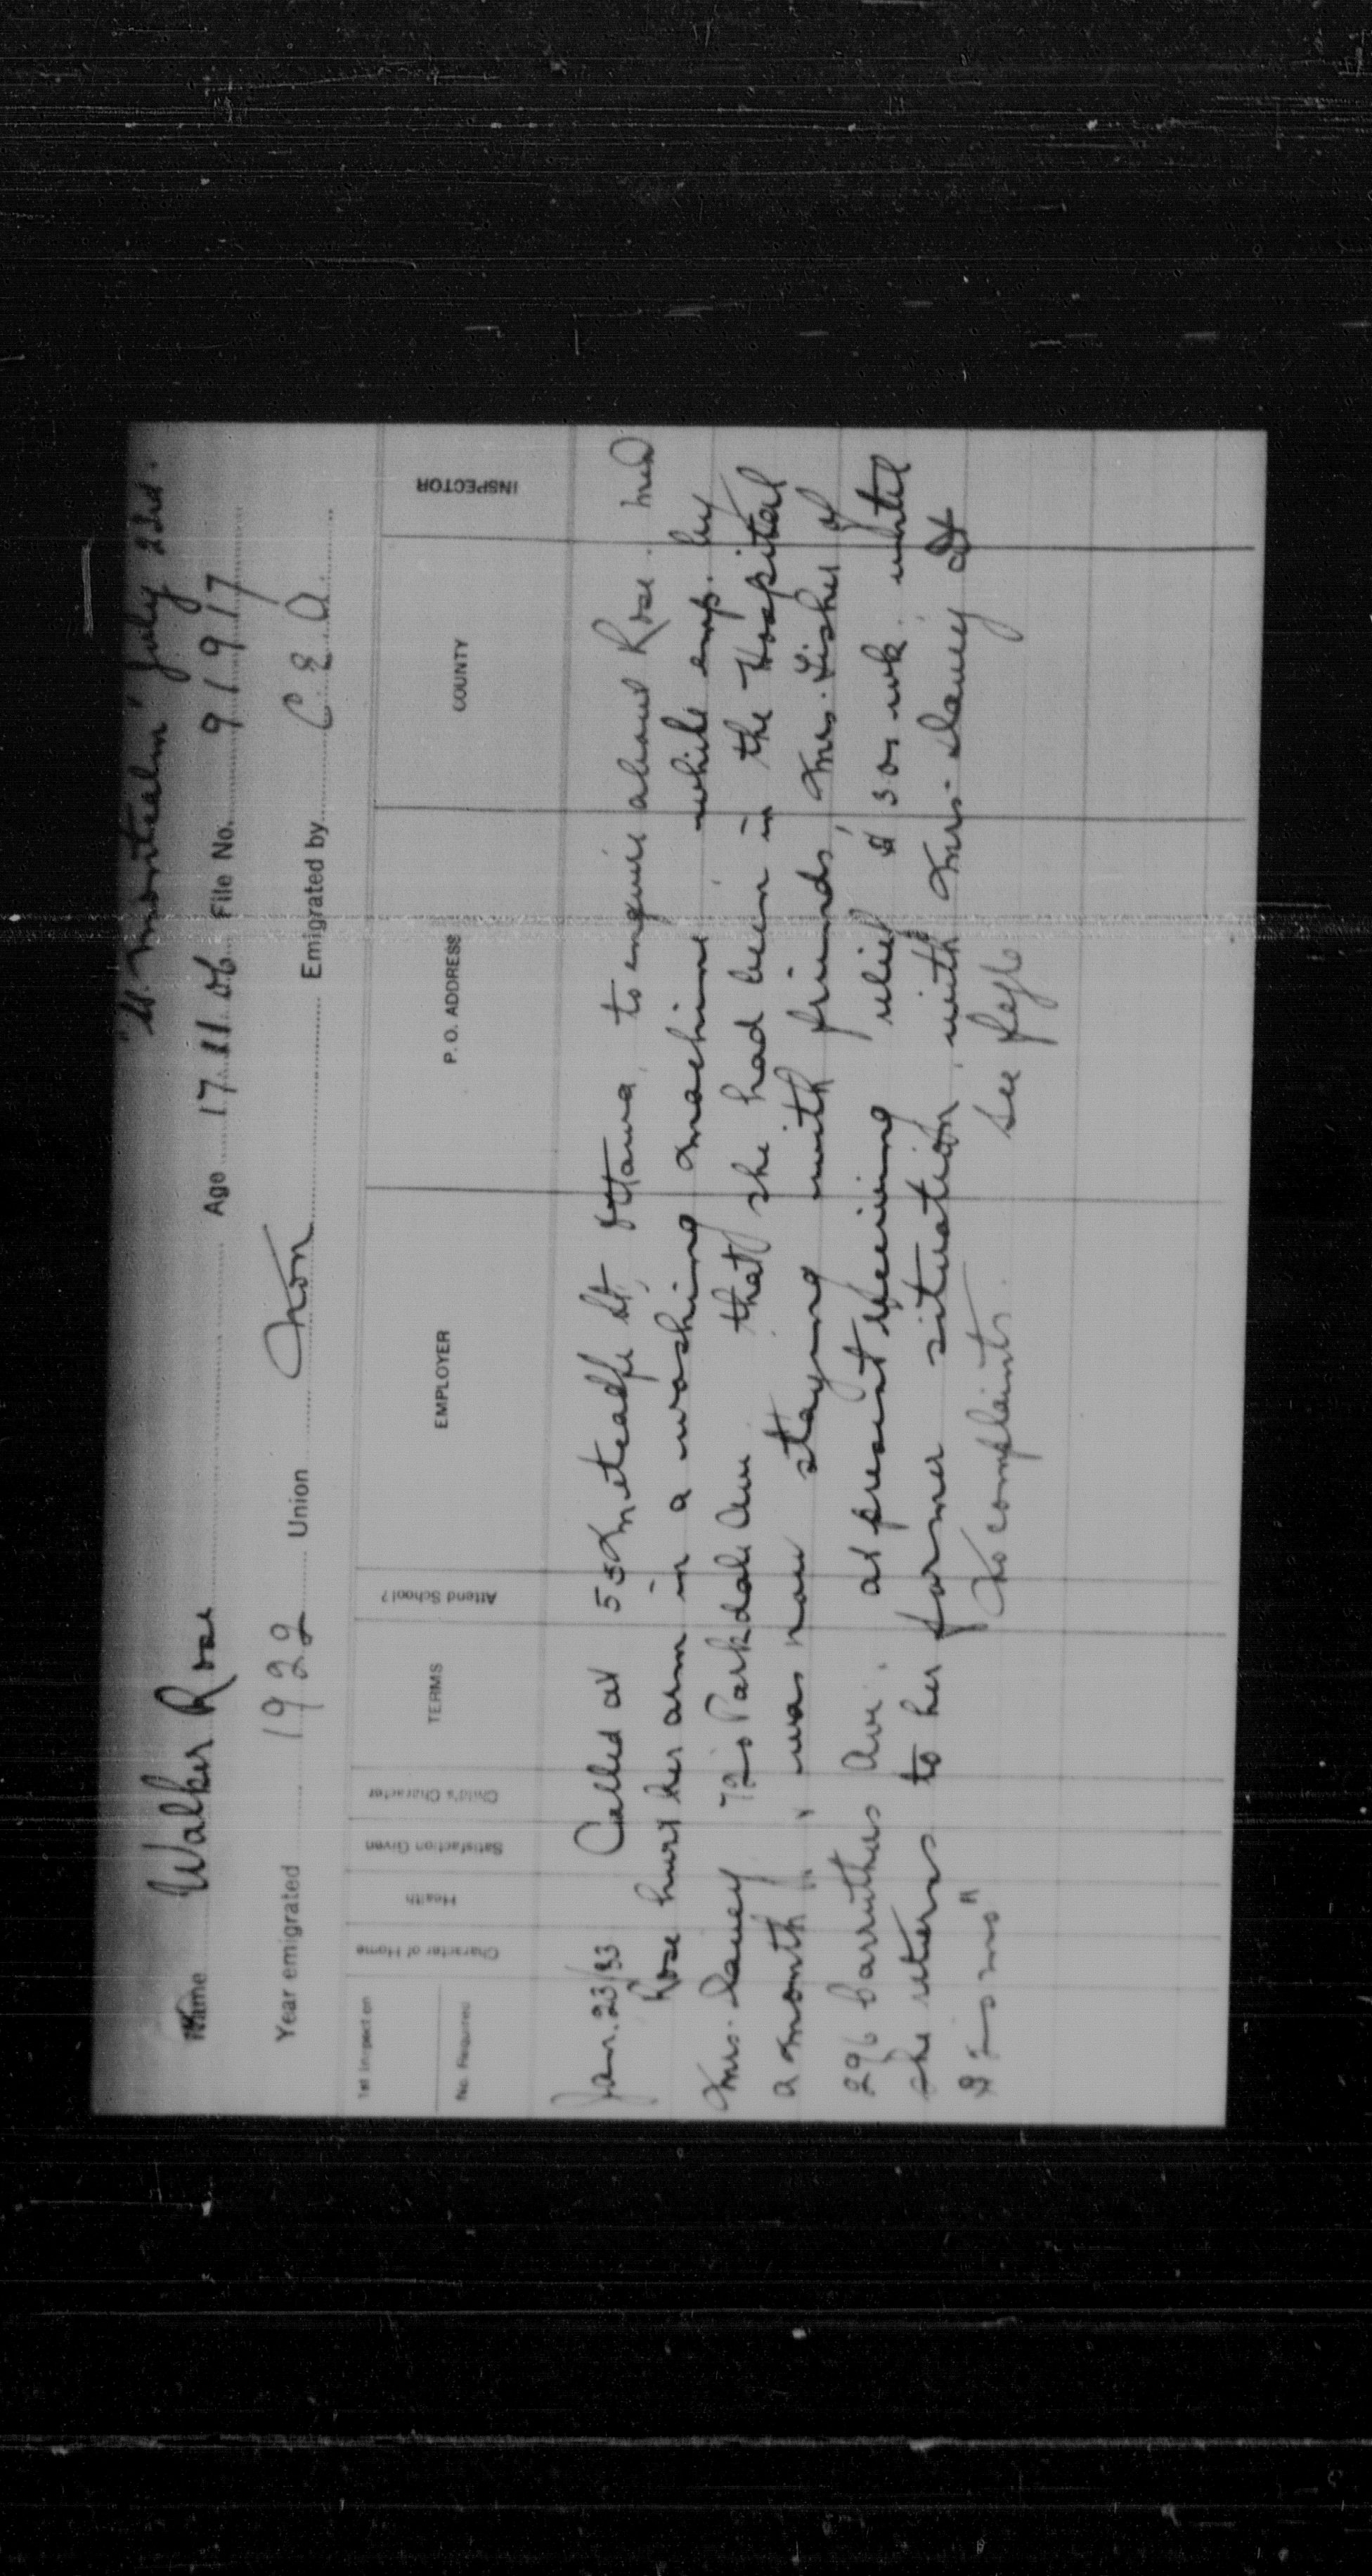 "SS. Montcalm" July 22nd.
Name Walker Rose Age 17.11.06 File No. 91917
Year emigrated 1922 Union Non Emigrated by C E A
1st Inspection
No. Required
Character of Home
Health
Satisfaction Given
Child's Character
TERMS
Attend School?
EMPLOYER
P. O. ADDRESS
COUNTY
INSPECTOR
Jan. 23/33 Called at Metcalfe St, Ottawa, to enquire about Rose.
Rose hurt her arm in a washing machine while emp. by
Mrs. 72 Parkdale Ave that she had been in the Hospital
a month, was now staying with friends, Mrs. Fisher of
296 Carruthers Ave. at present receiving relief $3.05 wk. until
she returns to her former situation with Mrs.
No complaints. See